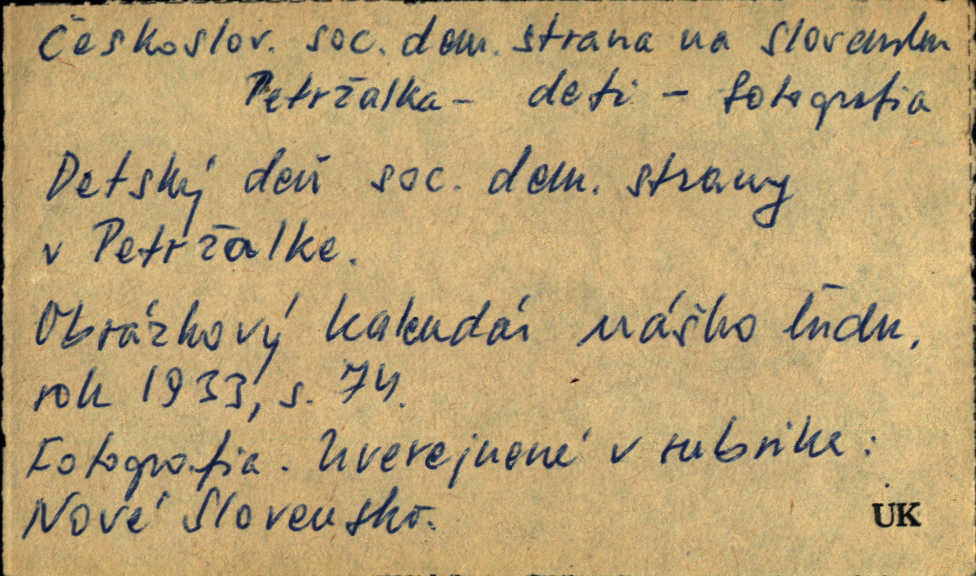 Českoslov. soc. dem. strana na Slovensku
Petržalka - deti - fotografia
Detský deň soc. dem. strany
v Petržalke.
Obrázkový kalendár nášho ľudu,
rok 1933, s. 74.
Fotografia. Uverejnené v rubrike:
Nové Slovensko.
UK